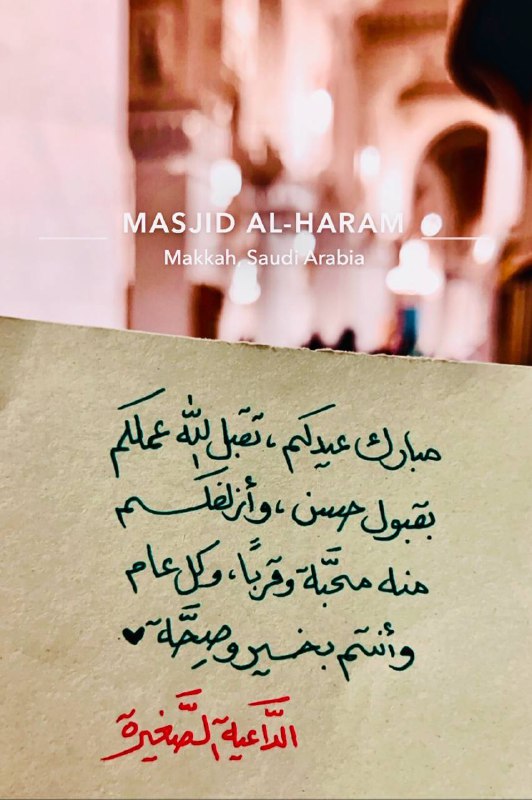 MASJID AL-HARAM
Makkah, Saudi Arabia
مبارك عيدكم، تقبل الله عملكم
بقبول حسن، وأزلفكم
منه محبَّة وقربًا، وكل عام
وأنتم بخير وصِحَّة ♥
الدَّاعية الصَّغيرة